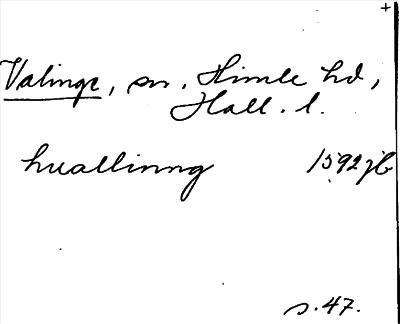 +
Valinge, sn. Himle hd,
Hall. l.
huallinng 1592 jb
s. 47.